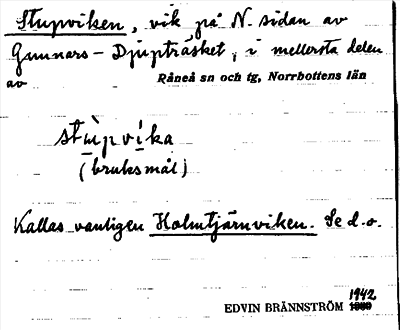 Stupviken, vik på N. sidan av
Gunnars-Djupträsket, i mellersta delen
av Råneå sn och tg, Norrbottens län
stùpvika
(bruksmål)
Kallas vanligen Holmtjärnviken. Se d.o.
1942
EDVIN BRÄNNSTRÖM